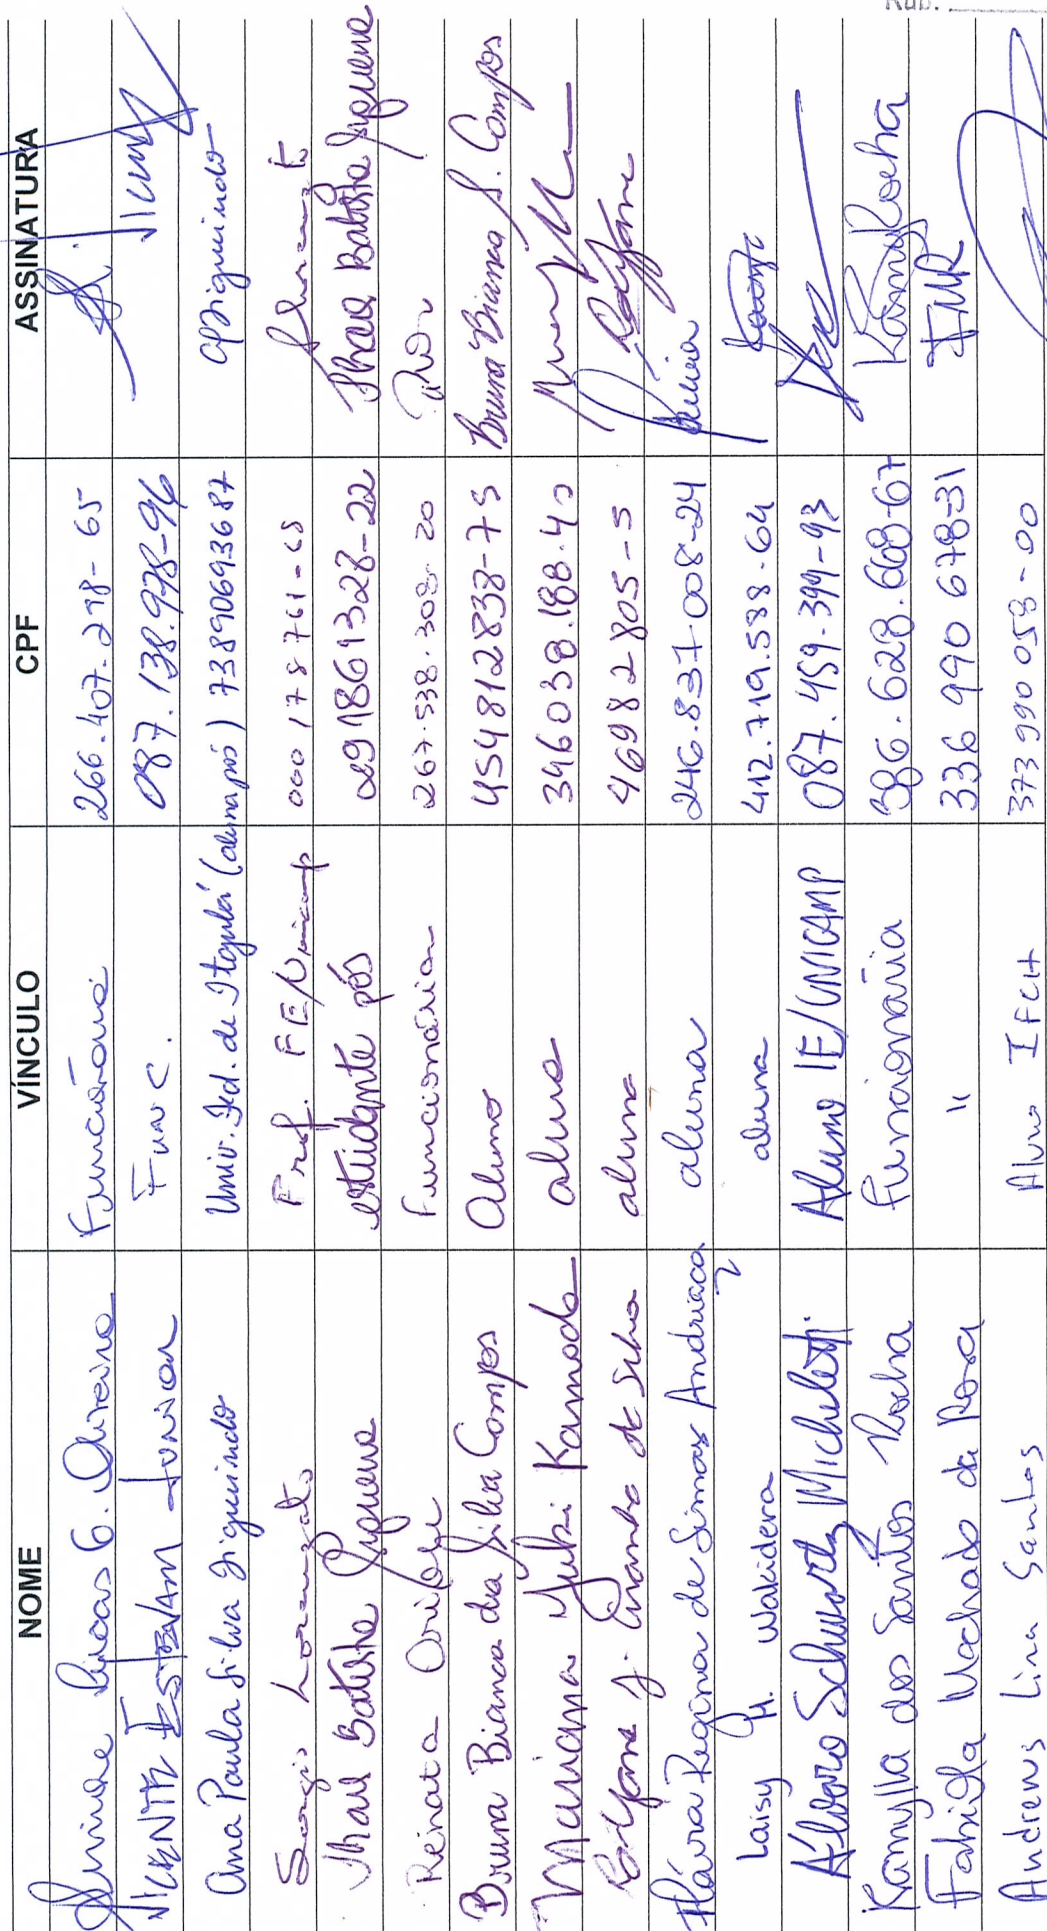 NOME VÍNCULO CPF ASSINATURA
Lucas G. Oliveira Funcionário 266.407.298-65
VICENTE ESTEVAM JUNIOR FUNC. 087.138.978-96
Ana Paula Silva Figueiredo Univ. Fed. de Itajubá (aluna pós) 73890693687 APFigueiredo
Sergio Lorenzato Prof. FE/Unicamp 000178761-68 Lorenzato
Thais Batista Piquena estudante pós 291861328-22 Thais Batista Piquena
Renata Funcionária 267.538.308-20
Bruna Bianca da Silva Campos Aluno 454812833-75 Bruna Bianca S. Campos
Mariana Yukari Kamoda aluna 346038.188.40
da Silva aluna 46982805-5
Flávia Regina de Simas Andriaca aluna 246.837.008-24
Laisy M. Wakidera aluna 412.719.588-64
Álvaro Schwartz Micheletti Aluno IE/UNICAMP 087.459.399-93
Kamylla dos Santos Rocha Funcionária 386.628.608-67 KamyRocha
Fabiola Machado da Rosa " 336 990 678-31 FMR
Andrews Lina Santos Aluno IFCH 373 990 058-00